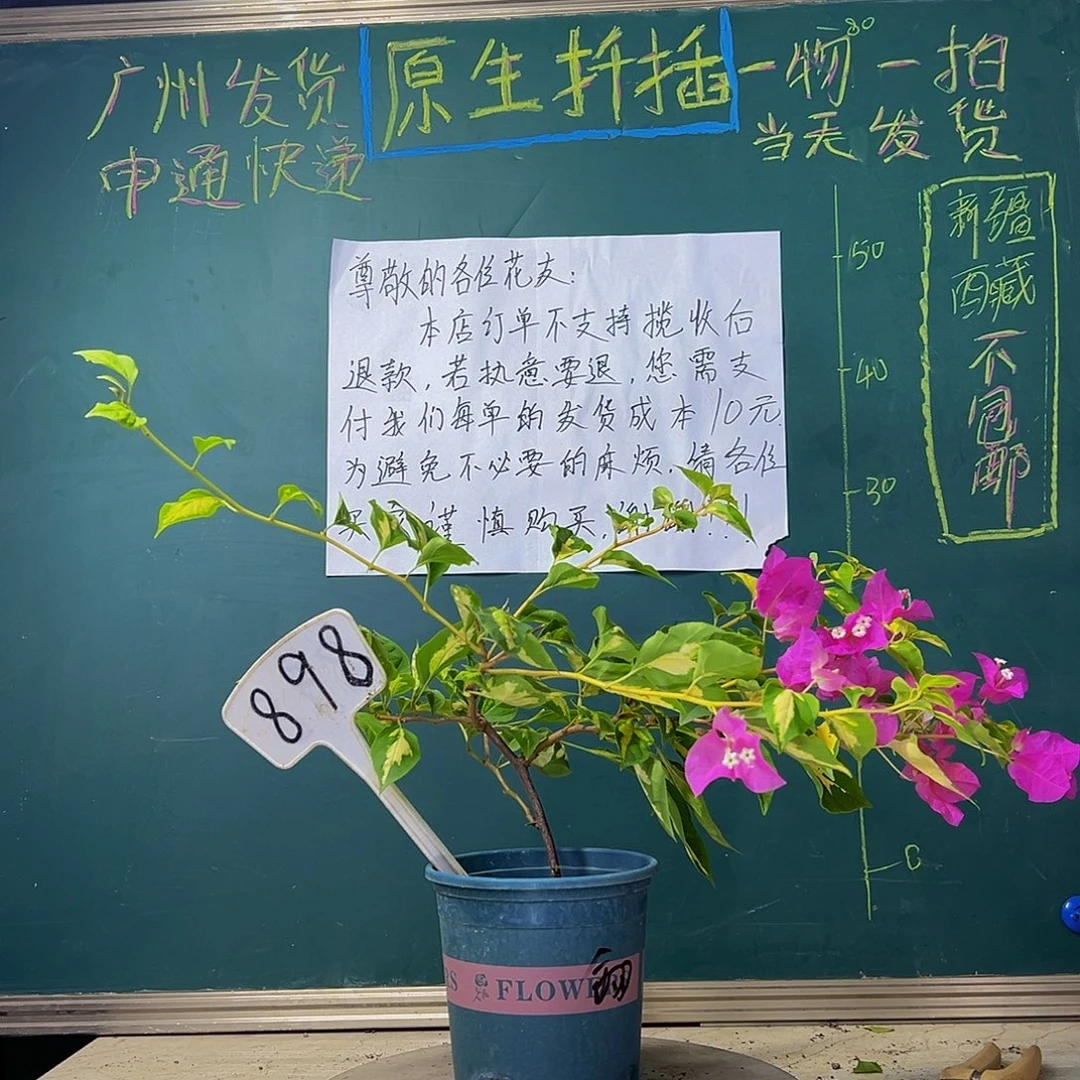 广州发货
申通快递
原生扦插
一物一拍
80
当天发货
新疆
西藏
不包邮
50
40
30
尊敬的各位花友:
本店订单不支持揽收后
退款,若执意要退,您需支
付我们每单的发货成本10元.
为避免不必要的麻烦,请各位
买家谨慎购买,谢谢!!!
898
FLOW